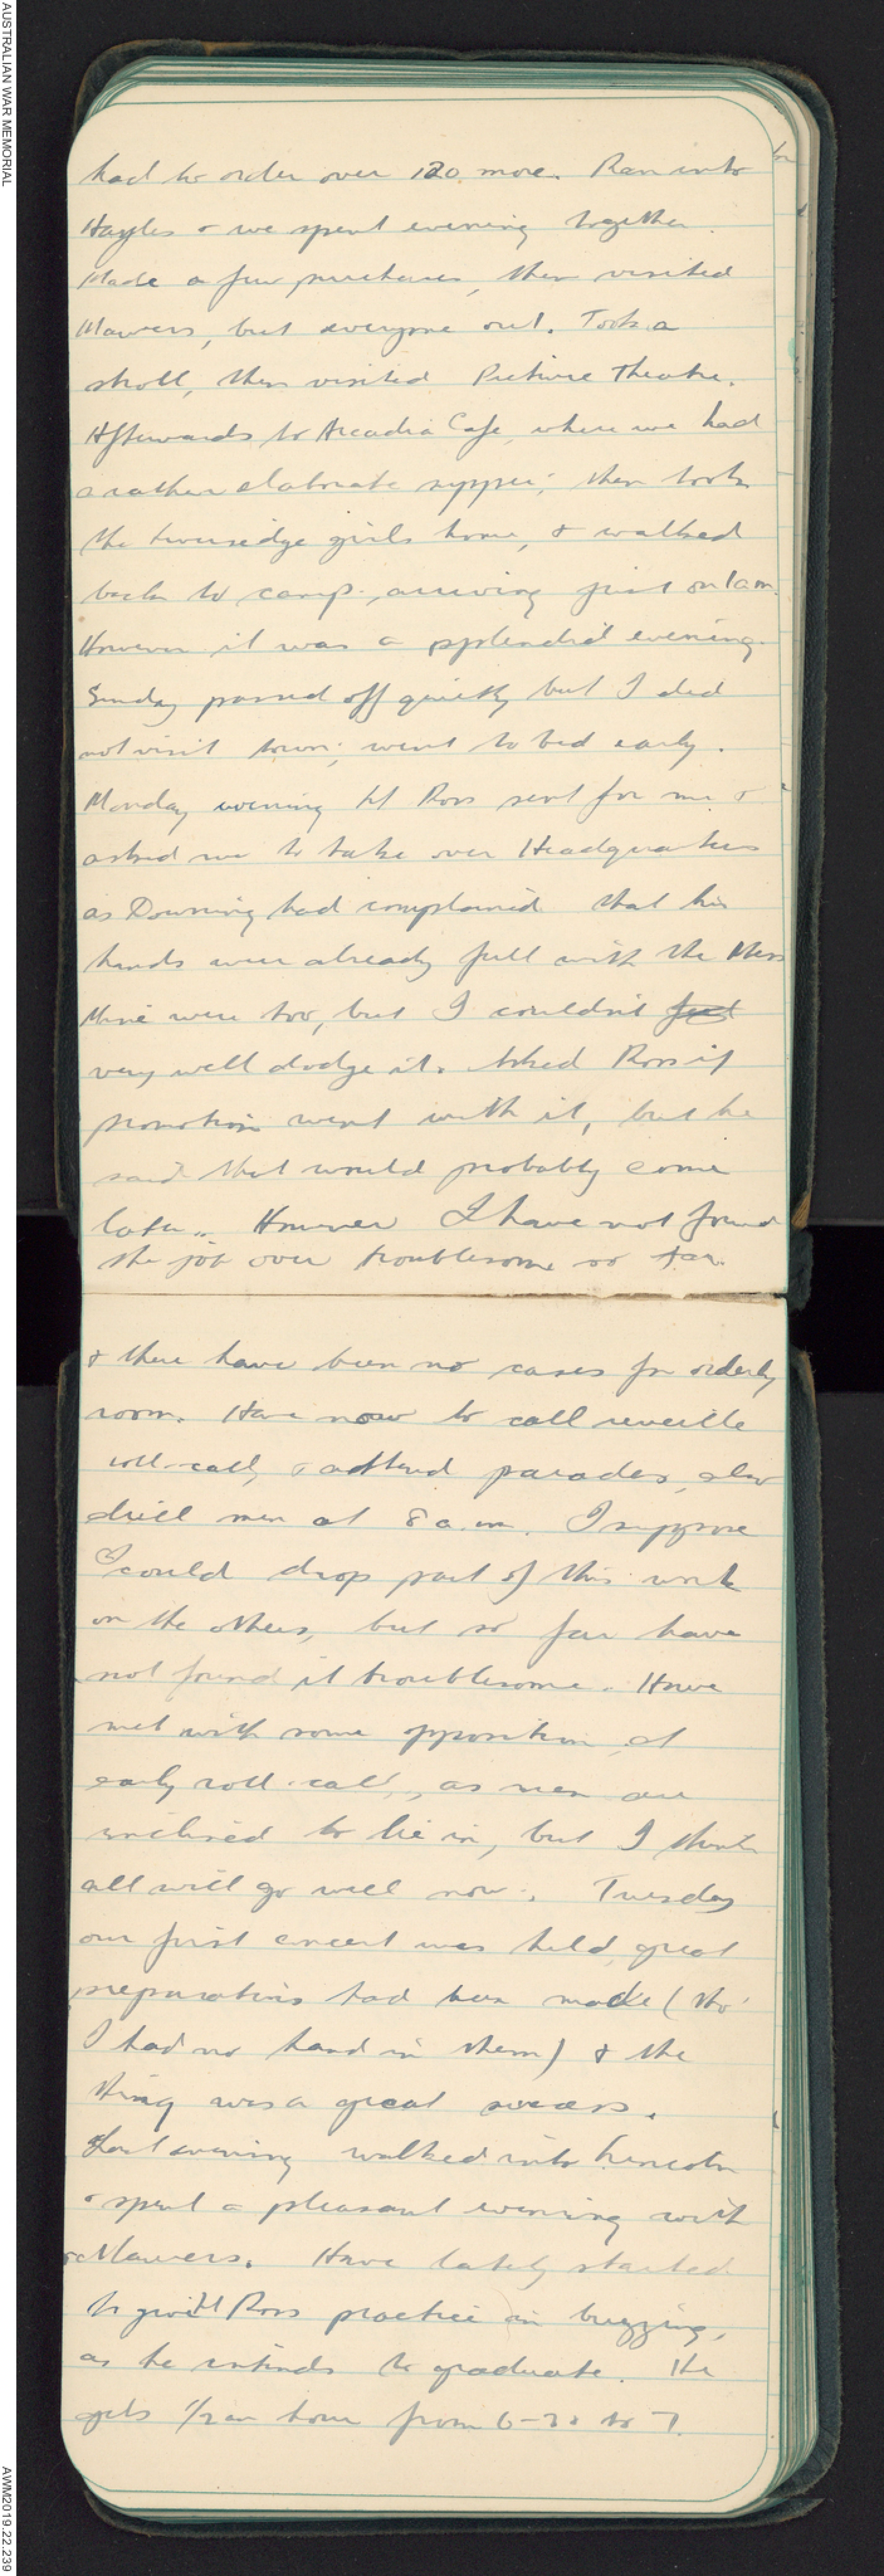 AUSTRALIAN WAR MEMORIAL
had to order over 120 more. Ran into
Hayles & we spent evening together.
Made a few purchases, then visited
Mawers, but everyone out. Took a
stroll, then visited Picture Theatre.
Afterwards to Arcadia Cafe, where we had
a rather elaborate supper; then took
the girls home, & walked
back to camp, arriving just on 1 am.
However it was a spplendid evening.
Sunday passed off quietly but I did
not visit town; went to bed early.
Monday evening Lt Ross sent for me &
asked me to take over Headquarters
as Downing had complained that his
hands were already full with the Mess
Mine were too, but I couldn't
very well dodge it. Asked Ross if
promotion went with it, but he
said that would probably come
later. However I have not found
the job over troublesome so far.
& there have been no cases for orderly
room. Have now to call reveille
roll-call, & attend parades, also
drill men at 8 a.m. I suppose
I could drop part of this work
on the others, but so far have
not found it troublesome. Have
met with some opposition at
early roll-call, as men are
inclined to lie in, but I think
all will go well now. Tuesday
our first concert was held, great
preparations had been made (tho'
I had no hand in them) & the
thing was a great success.
Last evening walked into Lincoln
& spent a pleasant evening with
Mawers. Have lately started
to give Lt Ross practice in buzzing,
as he intends to graduate. He
gets 1/2 an hour from 6-30 to 7.
AWM2019.22.239